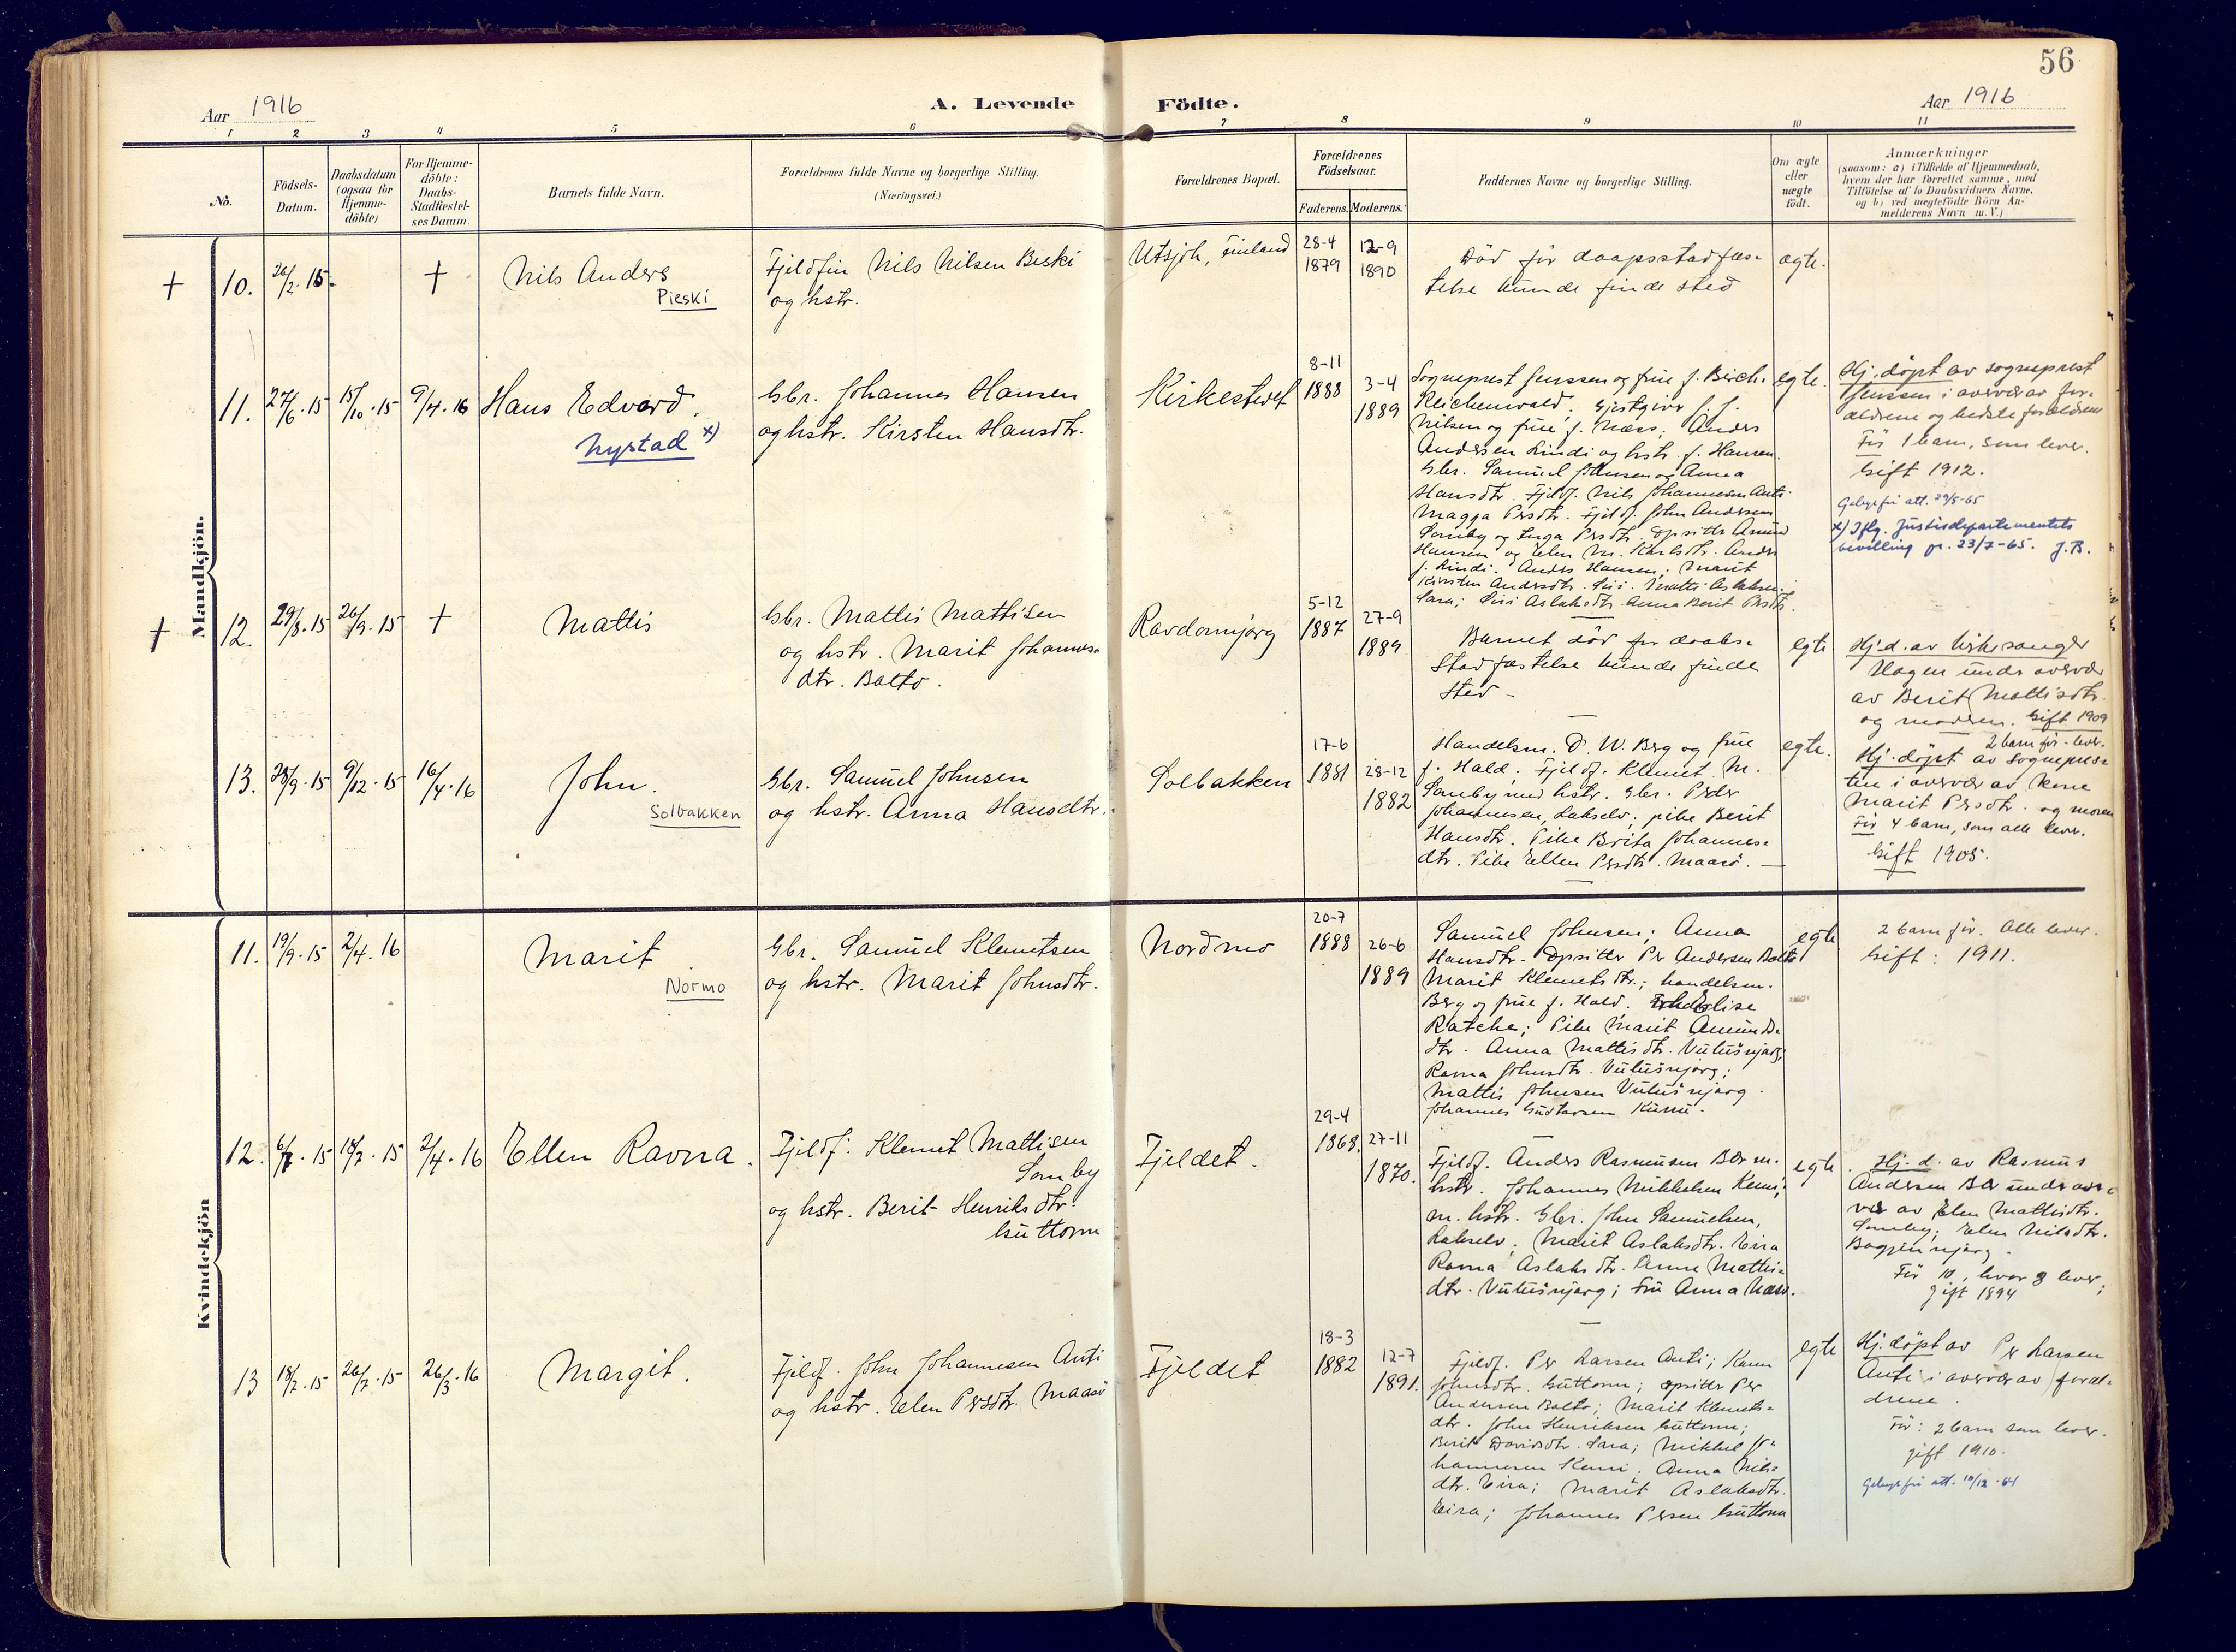 56
Aar 1916
A. Levende Födte.
Aar 1916
1 2 3 4 5 6 7 8 9 10 11
No.
Födsels-
Datum.
Daabsdatum
(ogsaa for
Hjemme-
döbte)
For Hjemme-
döbte:
Daabs-
Stadfæstel-
ses Datum.
Barnets fulde Navn.
Forældrenes fulde Navne og borgerlige Stilling.
(Næringsvei.)
Forældrenes Bopæl.
Forældrenes
Födselsaar.
Faderens. Moderens.
Faddernes Navne og borgerlige Stilling.
Om ægte
eller
uægte
födt.
Anmærkninger
(saasom: a) i Tilfælde af Hjemmedaab,
hvem der har forrettet samme, med
Tilföielse af to Daabsvidners Navne.
og b) ved uægtefödte Börn An-
melderens Navn m. V.)
Mandkjön.
+ 10. 26/2. 15. +
Nils Anders
Pieski
Fjeldfin Nils Nilsen Beski
og hstr.
Utsjok, Finland
28-4
1879
12-9
1890
Död för daapsstadfæs-
telse kunde finde sted
ægte.
11. 27/6. 15 15/10. 15 9/4. 16
Hans Edvard.
Nystad x)
Gbr. Johannes Hansen
og hstr. Kirsten Hansdtr.
Kirkestuet
8-11
1888
3-4
1889
Sogneprest Jenssen og frue f. Birch-
Reichenwald. Gjestgiver J. J.
Nilsen og frue f. Næss; Anders
Andersen Lindi og hstr. f. Hansen.
Gbr. Samuel Johnsen og Anna
Hansdtr. Fjeldf. Nils Johannesen Anti-
Magga Persdtr. Fjeldf. John Andersen
Somby og Inga Persdtr. Opsitter Amund
Hansen og Elen M. Karlsdtr. Anders
J. Lindi. Anders Hansen; Marit
Kirsten Andersdtr. Siri. Mattis Aslaksen
Sara; Siri Aslaksdtr. Anna Berit Persdtr.
egte.
Hj. döpt av sogneprest
Jenssen i overvær av for-
ældrene og bedsteforældrene
För 1 barn, som lever.
Gift 1912.
Gebyrfri att. 29/5-65
x) Iflg. Justisdepartementets
bevilling av 23/7-65. J.B.
+ 12. 29/8. 15 26/9. 15 +
Mattis
Gbr. Mattis Mattisen
og hstr. Marit Johannes-
dtr. Balto.
Ravdonjarg
5-12
1887
27-9
1889
Barnet död för daabs-
stadfæstelse kunde finde
sted -
egte
Hj. d. av kirkesanger
Hagen under overvær
av Berit Mattisdtr.
og moderen. Gift 1909
2 barn för - lever.
13. 28/9. 15 9/12. 15 16/4. 16
John.
Solbakken
Gbr. Samuel Johnsen
og hstr. Anna Hansdtr.
Solbakken
17-6
1881
28-12
1882
Handelsm. D. W. Berg og frue
f. Hald. Fjeldf. Klemet M.
Somby med hstr. Gbr. Peder
Johannesen, Lakselv; pike Berit
Hansdtr. Pike Brita Johannes-
dtr. Pike Ellen Persdtr. Maasö.
egte.
Hj. döpt av sognepres-
ten i overvær av kone
Marit Persdtr. og moren
För 4 barn, som alle lever.
Gift 1905.
Kvindekjön
11. 19/9. 15 2/4. 16
Marit
Normo
Gbr. Samuel Klemetsen
og hstr. Marit Johnsdtr.
Nordmo
20-7
1888
26-6
1889
Samuel Johnsen; Anna
Hansdtr. Opsitter Per Andersen Balto
Marit Klemetsdtr.; handelsm.
Berg og frue f. Hald. Elise
Ratche; Pike Marit Amunds-
dtr. Anna Mattisdtr. Vuolusnjarg;
Ravna Johnsdtr. Vuolusnjarg;
Mattis Johnsen Vuolusnjarg.
Johannes Gustavsen
egte
2 barn för. Alle lever.
Gift: 1911.
12. 6/7. 15 18/7. 15 2/4. 16
Ellen Ravna.
Fjeldf. Klemet Mattisen
Somby
og hstr. Berit Henriksdtr.
Guttorm
Fjeldet.
29-4
1868.
27-11
1870.
Fjeldf. Anders Rasmusen Bær m.
hstr. Johannes Mikkelsen Kemi,
m. hstr. Gbr. John Samuelsen,
Lakselv. Marit Aslaksdtr. Eira
Ravna Aslaksdtr. Anne Mattis-
dtr. Vuolusnjarg; Fru Anna Næss.
egte.
Hj. d. av Rasmus
Andersen Bær under over-
vær av Elen Mattisdtr.
Somby; Elen Nilsdtr.
För 10, hvor 8 lever;
gift 1894
13 18/7. 15 26/7. 15 26/3. 16
Margit.
Fjeldf. John Johannesen Anti
og hstr. Elen Persdtr. Maasö
Fjeldet
18-3
1882
12-7
1891.
Fjeldf. Per Larsen Anti; Karen
Johnsdtr. Guttorm; opsitter Per
Andersen Balto; Marit Klemets-
dtr. John Henriksen Guttorm;
Berit Davidsdtr. Sara; Mikkel Jo-
hannesen Kemi. Anna Nils-
dtr. Eira; Marit Aslaksdtr.
Eira; Johannes Persen Guttorm
egte
Hj. döpt av Per Larsen
Anti i overvær av foræl-
drene.
För: 2 barn som lever.
gift 1910.
Gebyrfri att. 10/12-64